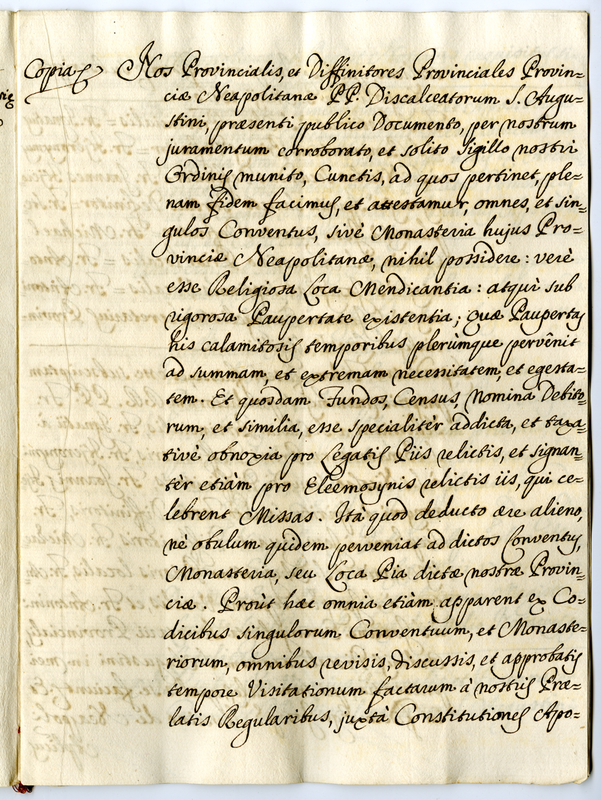 Copia Nos Provincialis, et Diffinitores Provinciales Provin=
ciæ Neapolitanæ PP. Discalceatorum S. Augu=
stini, præsenti publico Documento, per nostrum
juramentum corroborato, et solito sigillo nostri
Ordinis munito, Cunctis, ad quos pertinet, ple=
nam fidem facimus, et attestamur, omnes, et sin=
gulos Conventus, sivè Monasteria hujus Pro=
vinciæ Neapolitanæ, nihil possidere: verè
esse Religiosa Loca Mendicantia: atquì sub
rigorosa Paupertate existentia; quæ Paupertas
his calamitosis temporibus plerùmque pervênit
ad summam, et extremam necessitatem, et egesta=
tem. Et quosdam Fundos, Census, nomina Debito=
rum, et similia, esse specialitèr addicta, et taxa=
tivè obnoxia pro Legatis Piis relictis, et signan=
tèr etiàm pro Eleemosynis relictis iis, qui ce=
lebrent Missas. Ità quod deducto ære alieno,
nè obulum quidem perveniat ad dictos Conventus,
Monasteria, seu Loca Pia dictæ nostræ Provin=
ciæ. Proùt hæc omnia etiàm apparent ex Co=
dicibus singulorum Conventuum, et Monaste=
riorum, omnibus revisis, discussis, et approbatis
tempore Visitationum factarum à nostris Præ=
latis Regularibus, juxtà Constitutiones Apo=